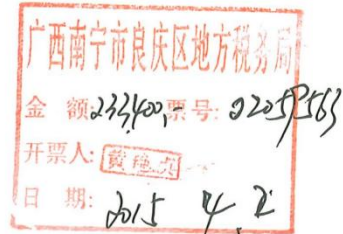 广西南宁市良庆区地方税务局
金 额:233,400,- 票号: 02059563
开票人: 黄
日 期: 2015 4 2